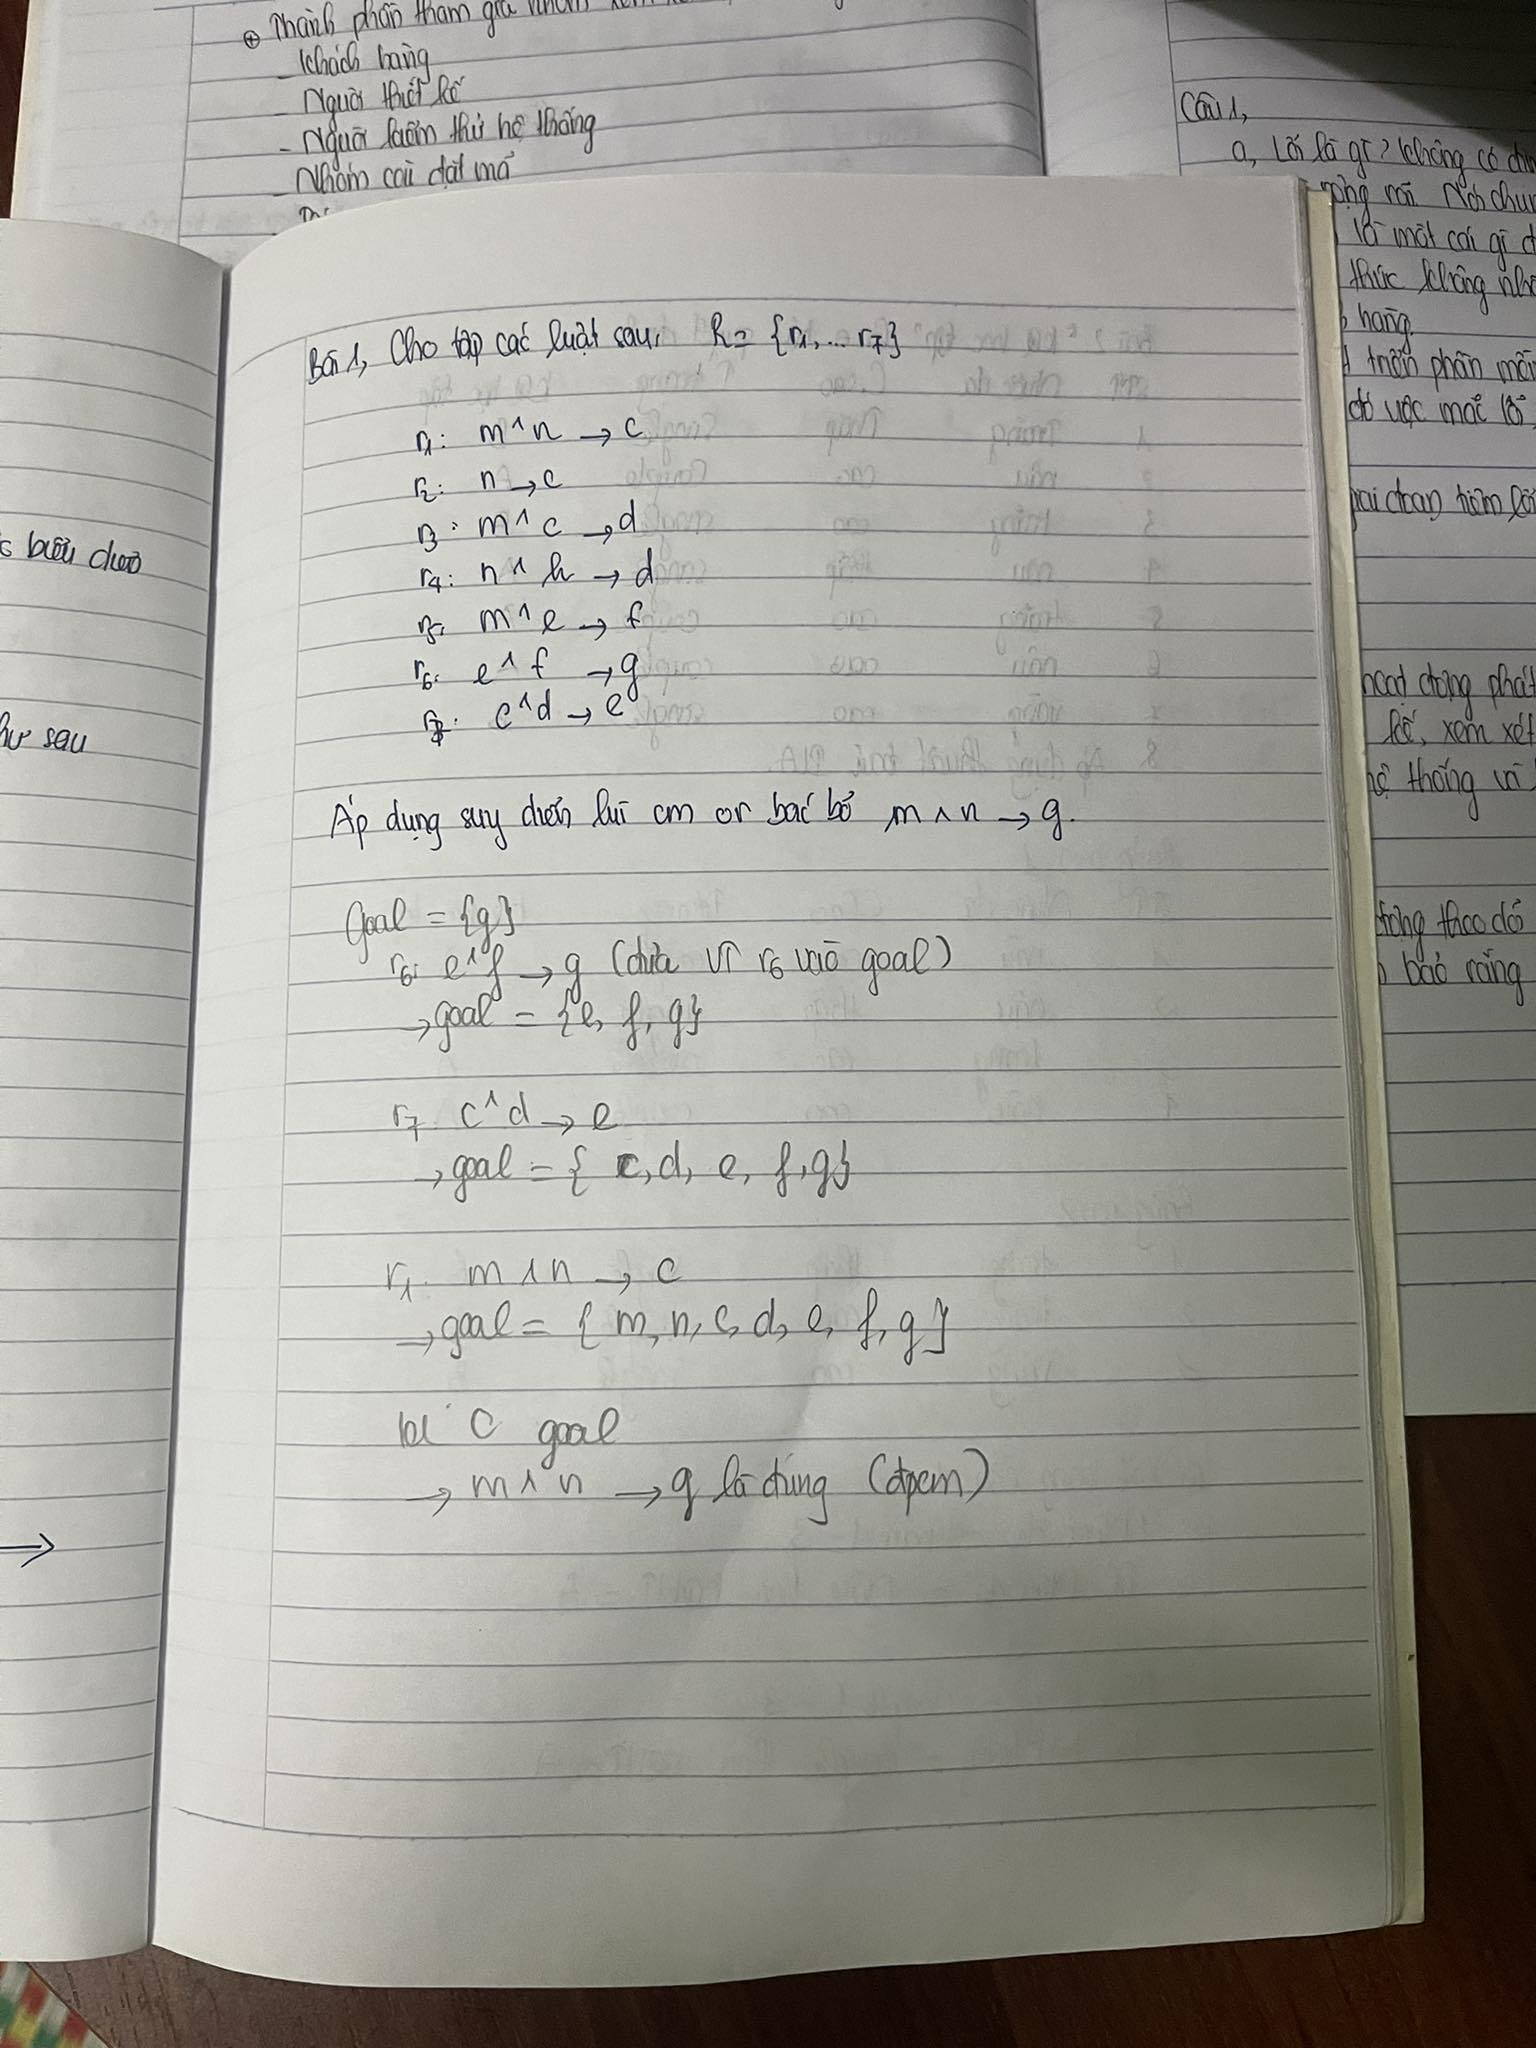 ⊕ Thành phần tham gia nhóm
- Khách hàng
- Người thiết kế
- Người kiểm thử hệ thống
- Nhóm cài đặt mã
Câu 1,
a, Lỗi là gì? Không có
rộng rãi. Nói
là một cái gì
thức không
hàng.
trên phần
đó việc mắc lỗi
giai đoạn
hoạt động phát
kế, xem xét
hệ thống vì
theo dõi
báo rằng
biểu
sau
→
Bài 1, Cho tập các luật sau. R = {r1, ... r7}
r1: m ^ n → c
r2: n → c
r3: m ^ c → d
r4: n ^ h → d
r5: m ^ e → f
r6: e ^ f → g
r7: c ^ d → e
Áp dụng suy diễn lùi cm or bác bỏ m ∧ n → g.
Goal = {g}
r6: e ^ f → g (đưa VT r6 vào goal)
→ goal = {e, f, g}
r7: c ^ d → e
→ goal = { c, d, e, f, g}
r1: m ∧ n → c
→ goal = { m, n, c, d, e, f, g}
goal
→ m ∧ n → g là đúng (đpcm)